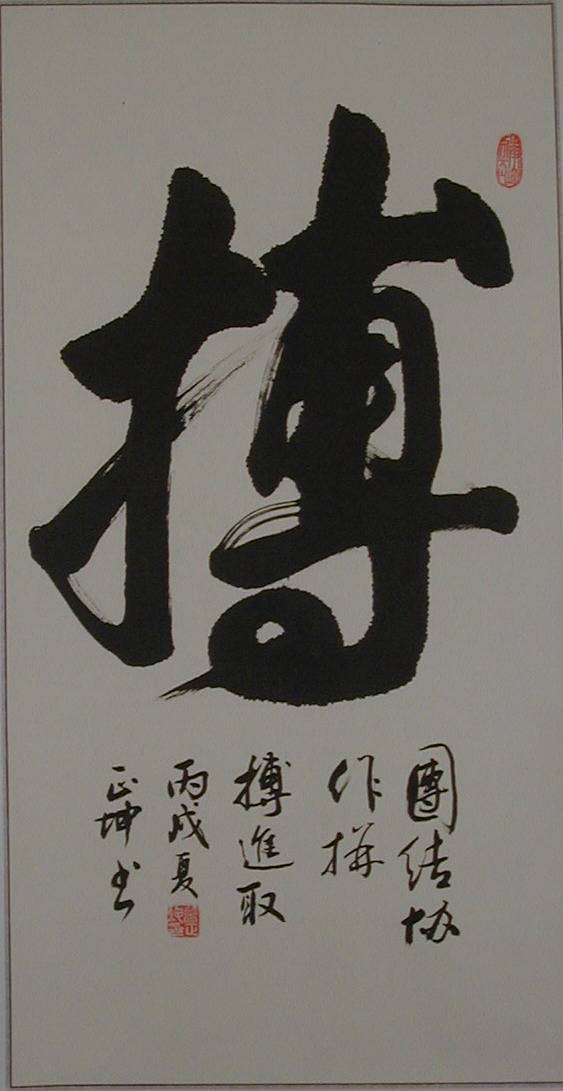 搏
團結协
作拼
搏進取
丙戌夏
正坤书